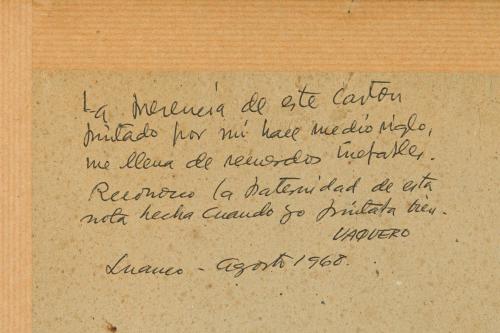 La presencia de este Carton
pintado por mí hace medio siglo,
me llena de recuerdos inefables.
Reconozco la paternidad de esta
nota hecha cuando yo pintaba bien.
VAQUERO
Luanco - Agosto 1968.